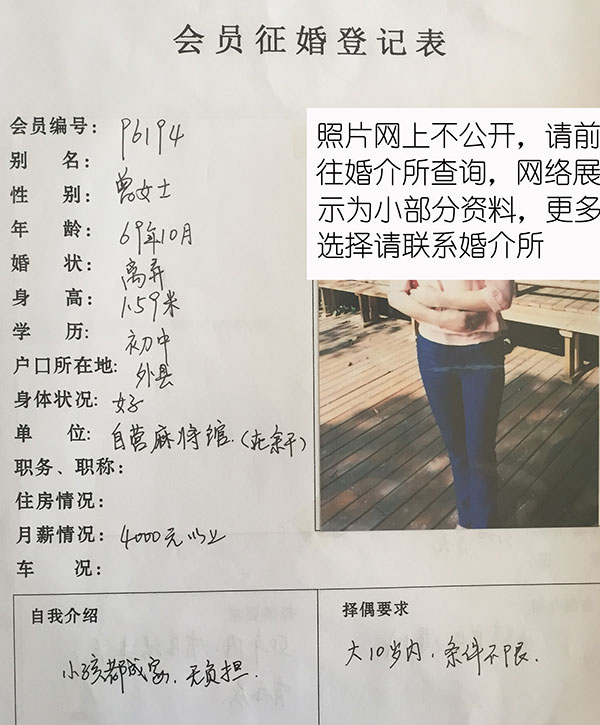 会员征婚登记表
会员编号: P6194
别 名: 曾女士
性 别:
年 龄: 69年10月
婚 状: 离异
身 高: 1.59米
学 历: 初中
户口所在地: 外县
身体状况: 好
单 位: 自营麻将馆.(在余干)
职务、职称:
住房情况:
月薪情况: 4000元以上
车 况:
照片网上不公开，请前
往婚介所查询，网络展
示为小部分资料，更多
选择请联系婚介所
自我介绍
小孩都成家,无负担.
择偶要求
大10岁内.条件不限.